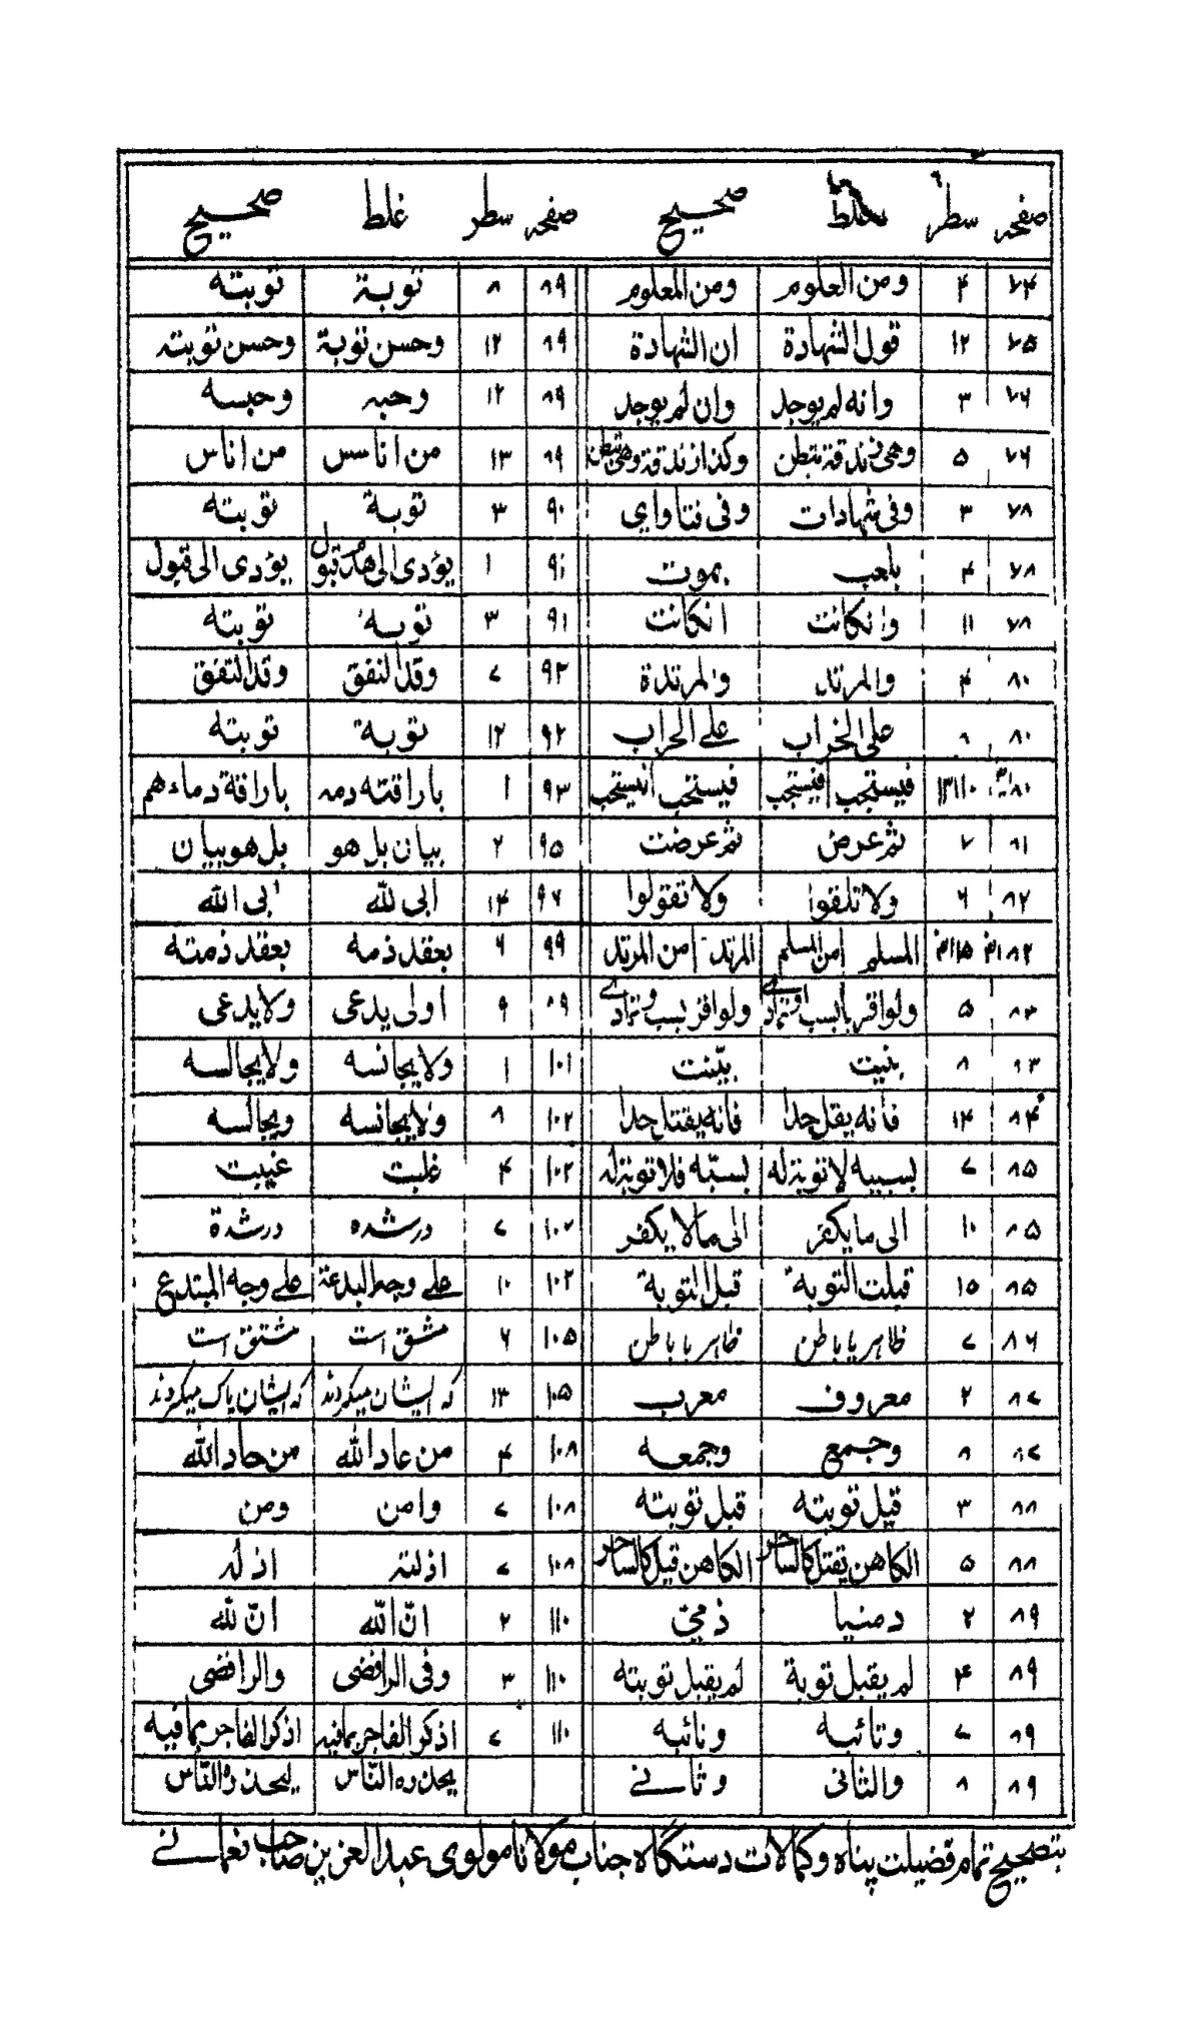 صفحہ سطر غلط صحیح صفحہ سطر غلط صحیح
۷۴ ۴ ومن العلوم ومن المعلوم ۸۹ ۸ توبة توبته
۷۵ ۱۲ قول الشهادة ان الشهادة ۸۹ ۱۲ وحسن توبة وحسن توبته
۷۶ ۳ وانه لم يوجد وان لم يوجد ۸۹ ۱۲ وحبه وحبسه
۷۶ ۵ وهى زندقة تبطن وكذا زندقة وهى تبطن ۸۹ ۱۳ من اناسس من اناس
۷۸ ۳ وفى شهادات وفى فتاواي ۹۰ ۳ توبة توبته
۷۸ ۴ بلعب بموت ۹۱ ۱ يؤدى الى قبول
۷۸ ۱۱ وانكانت انكانت ۹۱ ۳ توبه توبته
۸۰ ۴ والمرتد والمرتدة ۹۲ ۷ وقد النفق وقد التفق
۸۰ على الخراب علے الحراب ۹۲ ۱۲ توبة توبته
فيستجب ۹۳ ۱ باراقته دمه باراقة دماءهم
۸۱ ۷ ثم عرض ثم عرضت ۹۵ ۲ بيان بل هو بل هو بيان
۸۲ ۶ ولا تلقوا ولا تقولوا ۹۷ ۱۴ ابى لله ابى الله
۸۲ المسلم امن المسلم المرتد امن المرتد ۹۹ ۶ بعقد ذمه بعقد ذمته
۸۳ ۵ ولو اقر ولو اقر بسب ۹ اولى يدعى ولا يدعى
۸۳ ۸ بنيت بيّنت ۱۰۱ ۱ ولا يجانسه ولا يجالسه
۸۴ ۱۴ فانه يقل حدا فانه يقتل حدا ۱۰۲ ۸ ولا يجانسه ويجالسه
۸۵ ۷ بسببه لا توبة له بسبّه فلا توبة له ۱۰۲ ۴ غلبت غيبت
۸۵ ۱۰ الى ما يكفر الى مالا يكفر ۱۰۲ ۷ درشده درشدة
۸۵ ۱۵ قبلت التوبة قبل التوبة ۱۰۲ ۱۰ علے وجه البدعة علے وجه المبتدع
۸۶ ۷ ظاہر یا باطن ظاہر با باطن ۱۰۵ ۶ مشق است مشتق است
۸۷ ۲ معروف معرب ۱۰۵ ۱۳ کہ ایشان میکردند کہ ایشان پاک میکردند
۸۷ ۸ وجمع وجمعه ۱۰۸ ۴ من عاد الله من حاد الله
۸۸ ۳ قيل توبته قبل توبته ۱۰۸ ۷ وامن ومن
۸۸ ۵ الكاهن يقتل كالساحر الكاهن قيل كالساحر ۱۰۸ ۷ اذلته اذ له
۸۹ ۲ دمنيا ذميّ ۱۱۰ ۲ انّ الله انّ لله
۸۹ ۴ لم يقبل توبة لم يقبل توبته ۱۱۰ ۳ وفى الرافضى والرافضى
۸۹ ۷ وتائبه ونائبه ۱۱۰ ۷ اذكو الفاجر بما فيه اذكوا الفاجر بما فيه
۸۹ ۸ والثانى وثانے يحذره النّاس ليحذره النّاس
بتصحیح تمام فضیلت پناہ وکمالات دستگاہ جناب مولانا مولوی عبد العزیز صاحب نعمانے